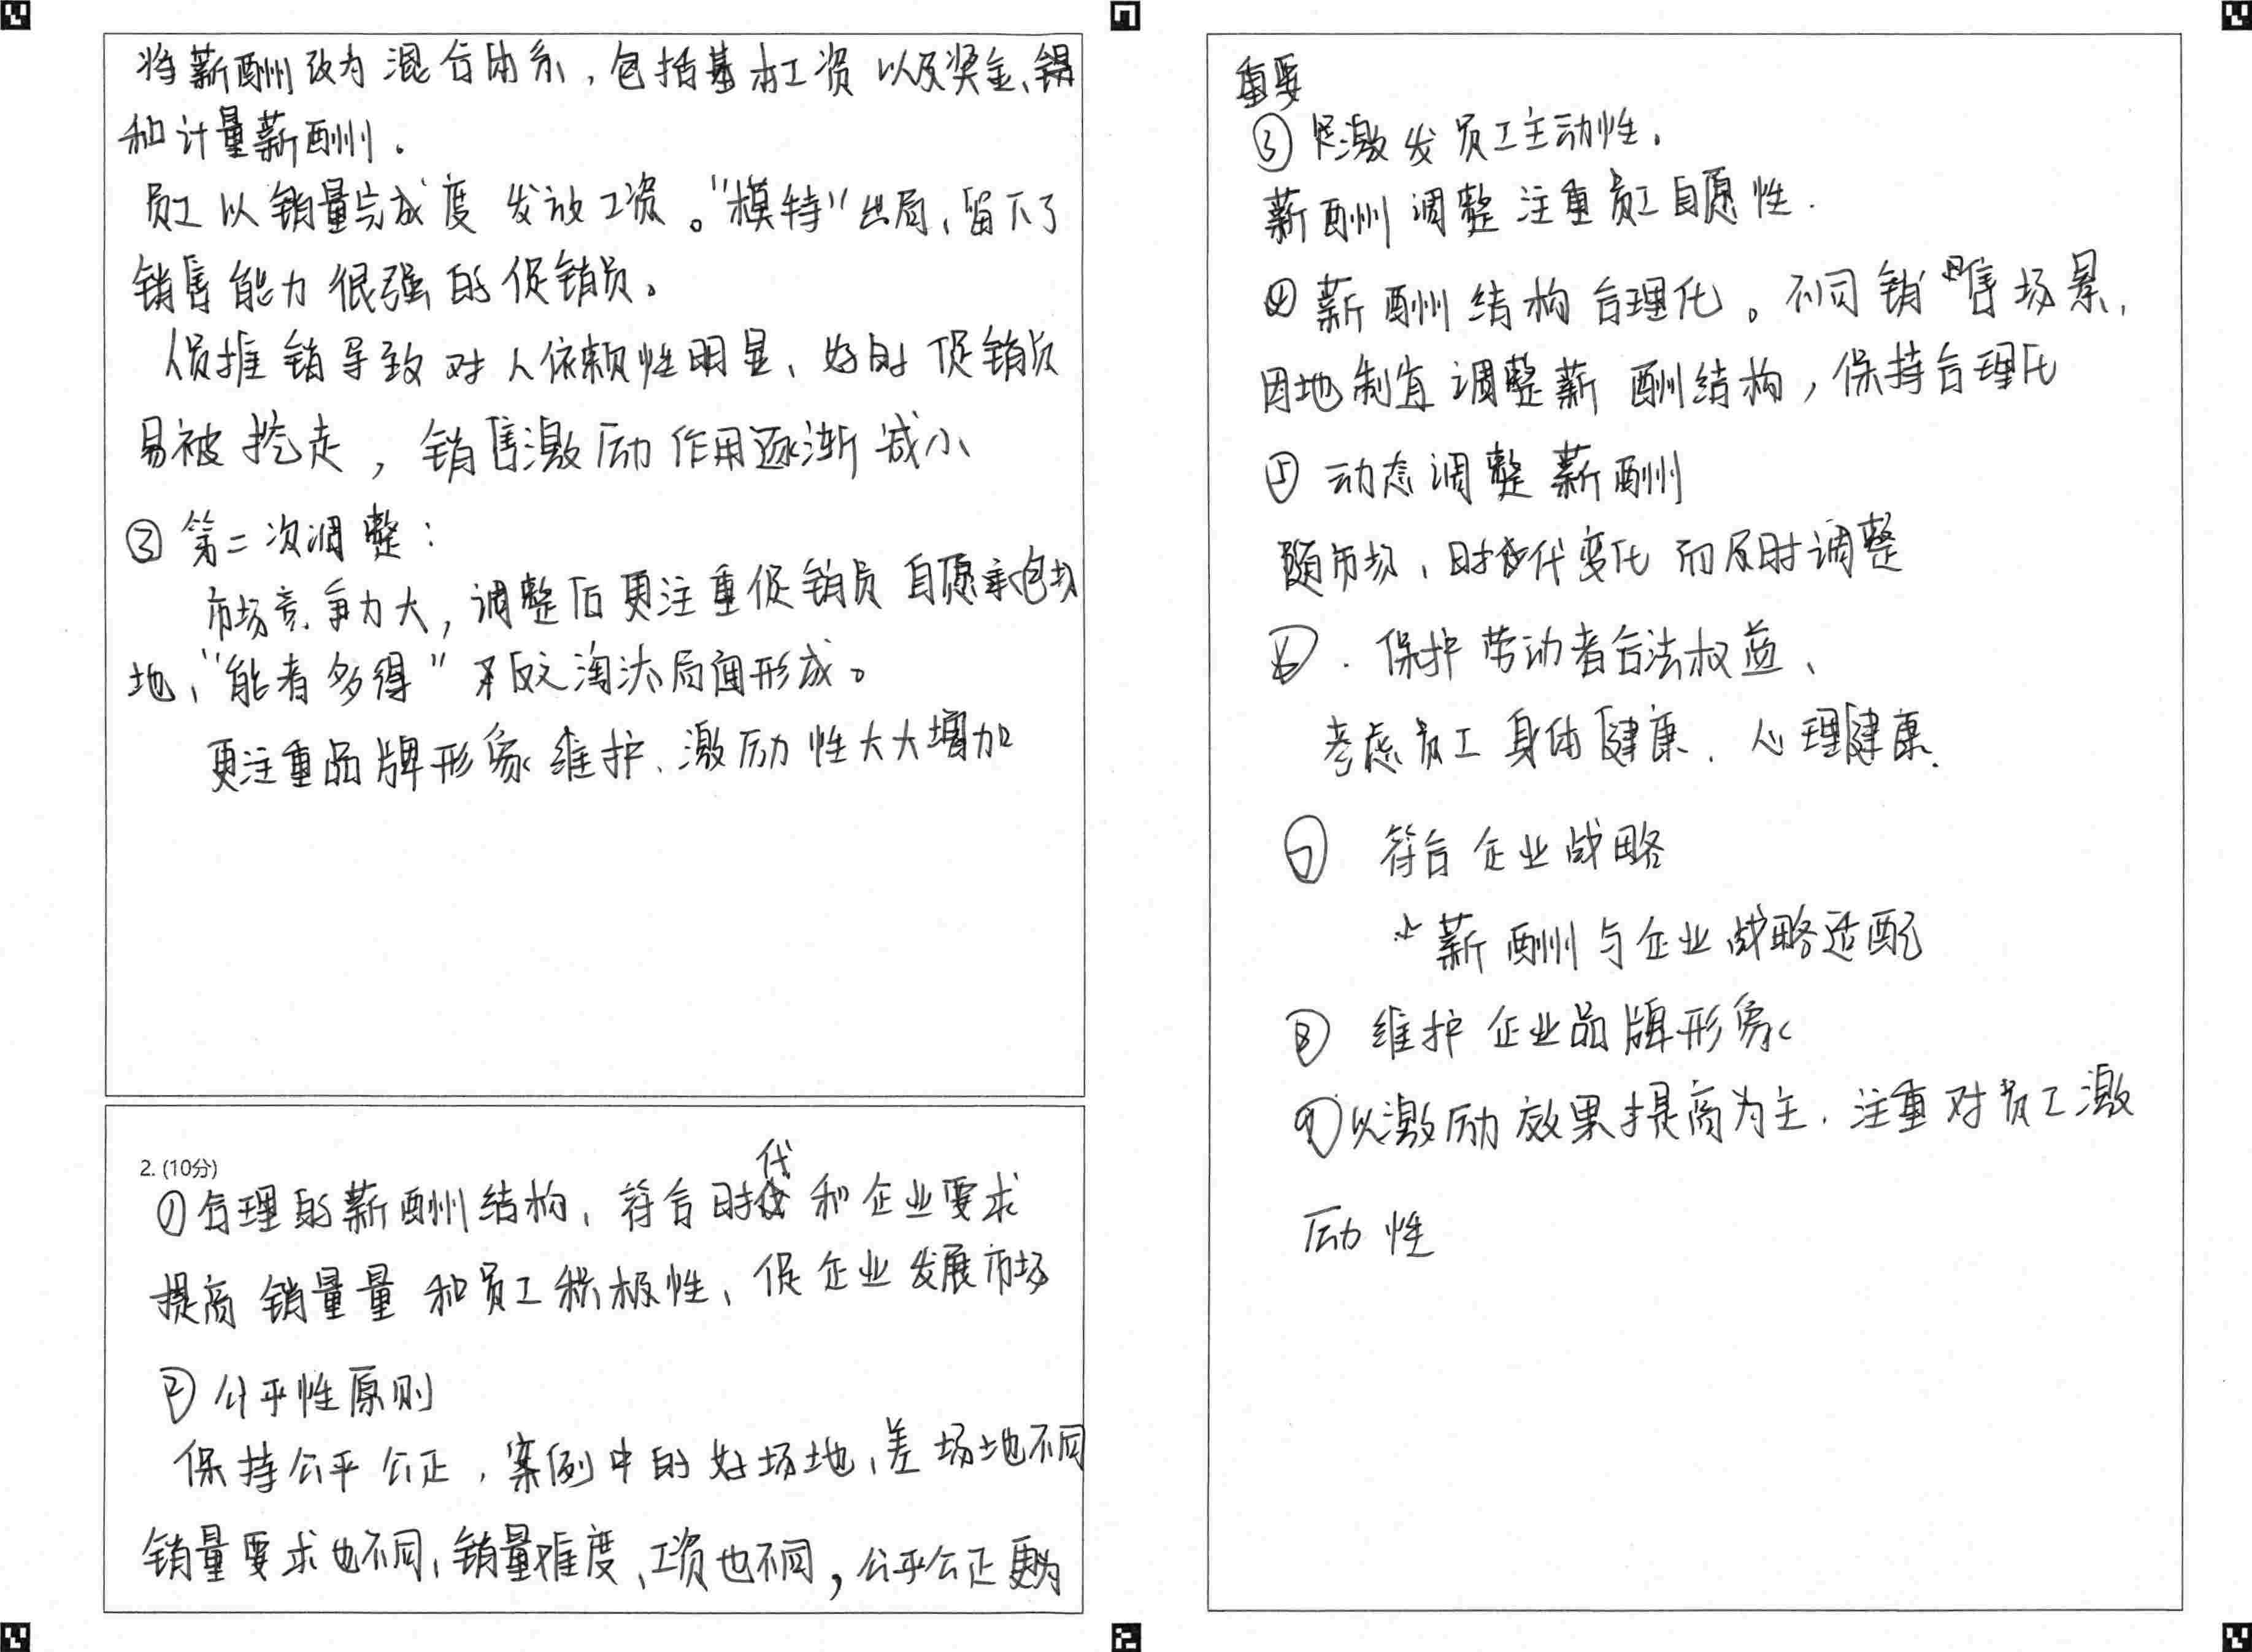 将薪酬改为混合体系，包括基本工资以及奖金、销
和计量薪酬。
员工以销量完成度发放工资。"模特"出局，留下了
销售能力很强的促销员。
人员推销导致对人依赖性明显、好的促销员
易被挖走，销售激励作用逐渐减小
③第二次调整：
市场竞争力大，调整后更注重促销员自愿承包场
地，"能者多得" 淘汰局面形成。
更注重品牌形象维护、激励性大大增加
2. (10分)
①合理的薪酬结构，符合时代和企业要求
提高销量量和员工积极性、促企业发展市场
②公平性原则
保持公平公正，案例中的好场地，差场地不同
销量要求也不同，销量难度、工资也不同，公平公正更为
重要
③激发员工主动性。
薪酬调整注重员工自愿性.
④薪酬结构合理化。不同销售场景，
因地制宜调整薪酬结构，保持合理化
⑤动态调整薪酬
随市场，时代变化而及时调整
⑥.保护劳动者合法权益、
考虑员工身体健康、心理健康.
⑦符合企业战略
薪酬与企业战略适配
⑧维护企业品牌形象
⑨以激励效果提高为主.注重对员工激
励性